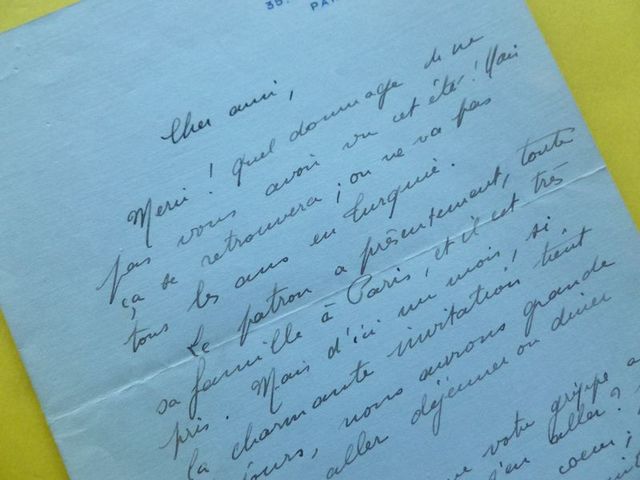 35.
PA
Cher ami,
Merci ! Quel dommage de ne
pas vous avoir vu cet été ! Mais
ça se retrouvera ; on ne va pas
tous les ans en Turquie.
Le patron a présentement, toute
sa famille à Paris, et il est très
pris. Mais d'ici un mois, si
la charmante invitation tient
jours, nous aurons grande
aller déjeuner ou dîner
que votre grippe a
s'en aller ?
coeur ;